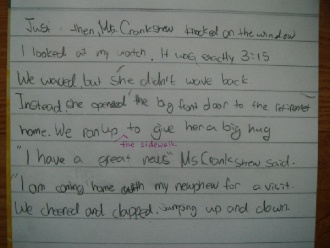 Just then, Ms. Crankshaw knocked on the window
I looked at my watch. It was exactly 3:15
We waved but she didn't wave back
Instead she opened the big front door to the retirement
home. We ran up to give her a big hug
the sidewalk
"I have a great news" Ms Crankshaw said.
"I am coming home with my nephew for a visit.
We cheered and clapped. Jumping up and down.